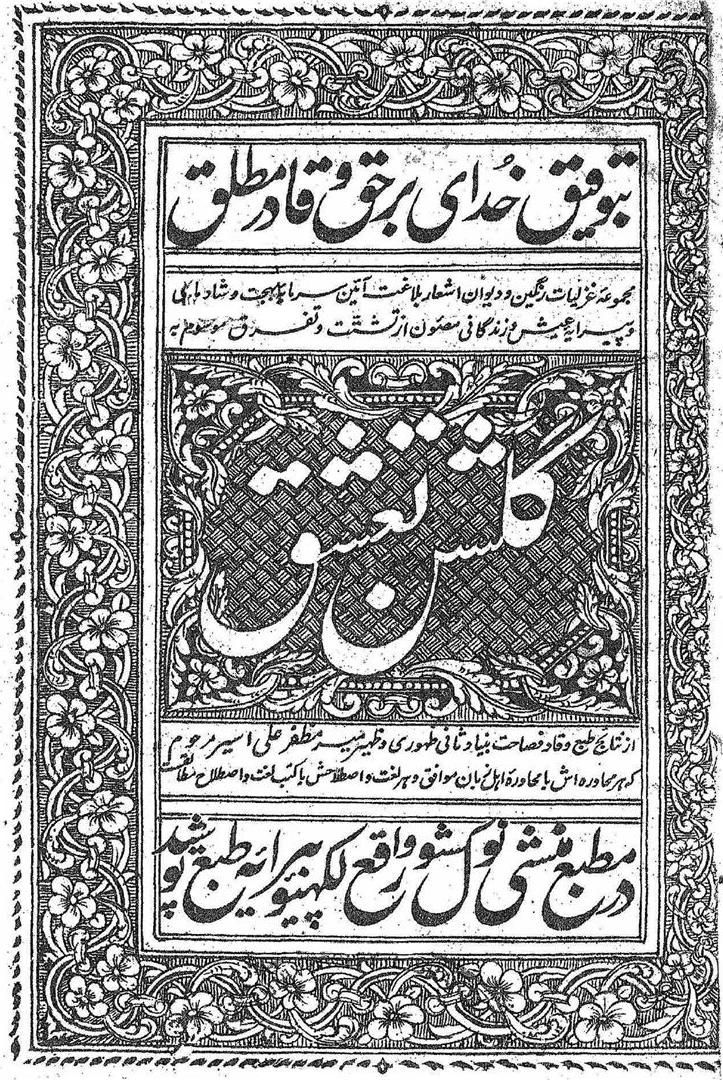 بتوفیق خُدای برحق و قادر مطلق
مجموعهٔ غزلیات رنگین و دیوان اشعار بلاغت آئین سرمایهٔ بهجت و شادمانی
و پیرایهٔ عیش و زندگانی مصئون از تشتت و تفرق موسوم به
گلشن تعشق
از نتایج طبع وقاد فصاحت بنیاد ثانی ظهوری و ظهیر میر مظفر علی اسیر مرحوم
که هر محاوره اش با محاورهٔ اهل زبان موافق و هر لغت و اصطلاحش با کتب لغت و اصطلاح مطابقست
در مطبع منشی نولکشور واقع لکهنئو پیرایهٔ طبع پوشید